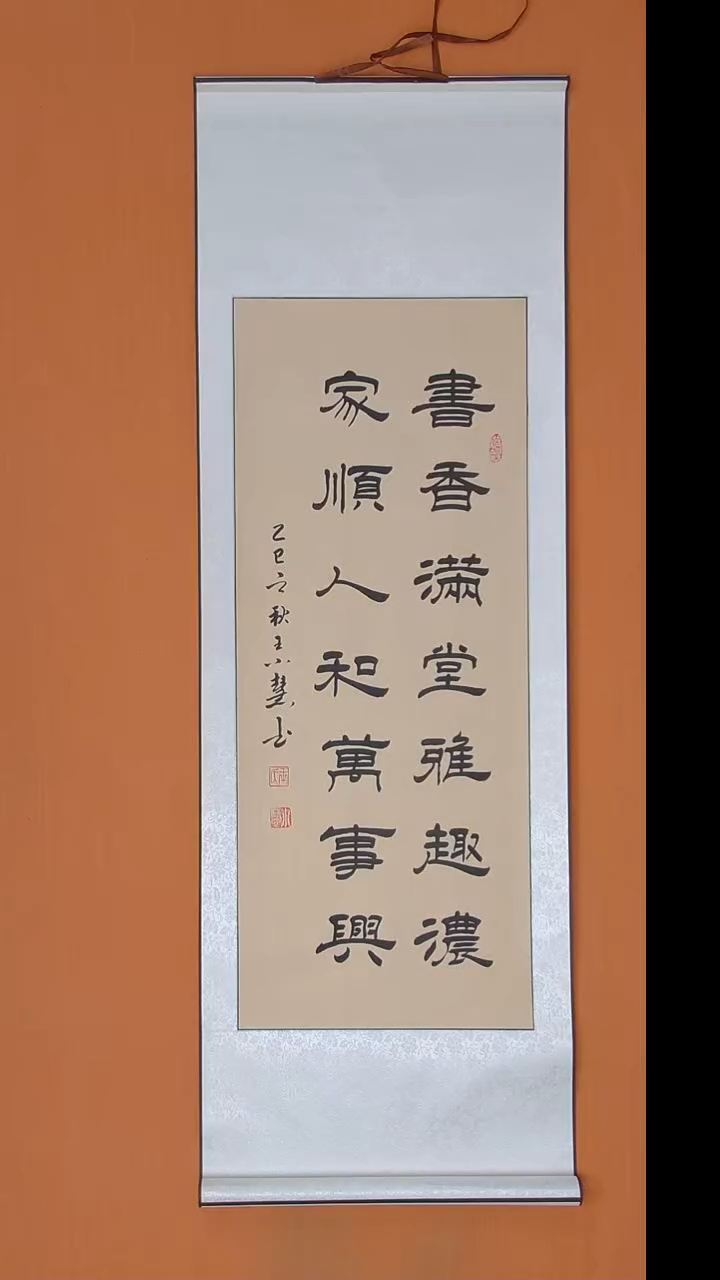 書香滿堂雅趣濃
家順人和萬事興
乙巳之秋王小慧书